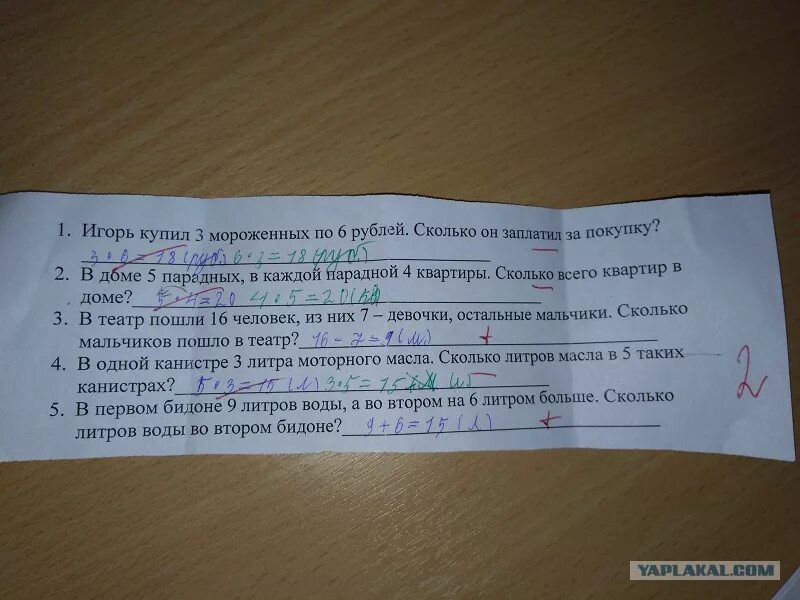 1. Игорь купил 3 мороженных по 6 рублей. Сколько он заплатил за покупку?
3·6=18(руб) 6·3=18(руб)
2. В доме 5 парадных, в каждой парадной 4 квартиры. Сколько всего квартир в
доме? 5·4=20 4·5=20(кв)
3. В театр пошли 16 человек, из них 7 – девочки, остальные мальчики. Сколько
мальчиков пошло в театр? 16-7=9(м) +
4. В одной канистре 3 литра моторного масла. Сколько литров масла в 5 таких
канистрах? 5·3=15(л) 3·5=15 (л) –
5. В первом бидоне 9 литров воды, а во втором на 6 литром больше. Сколько
литров воды во втором бидоне? 9+6=15(л) +
2
YAPLAKAL.COM